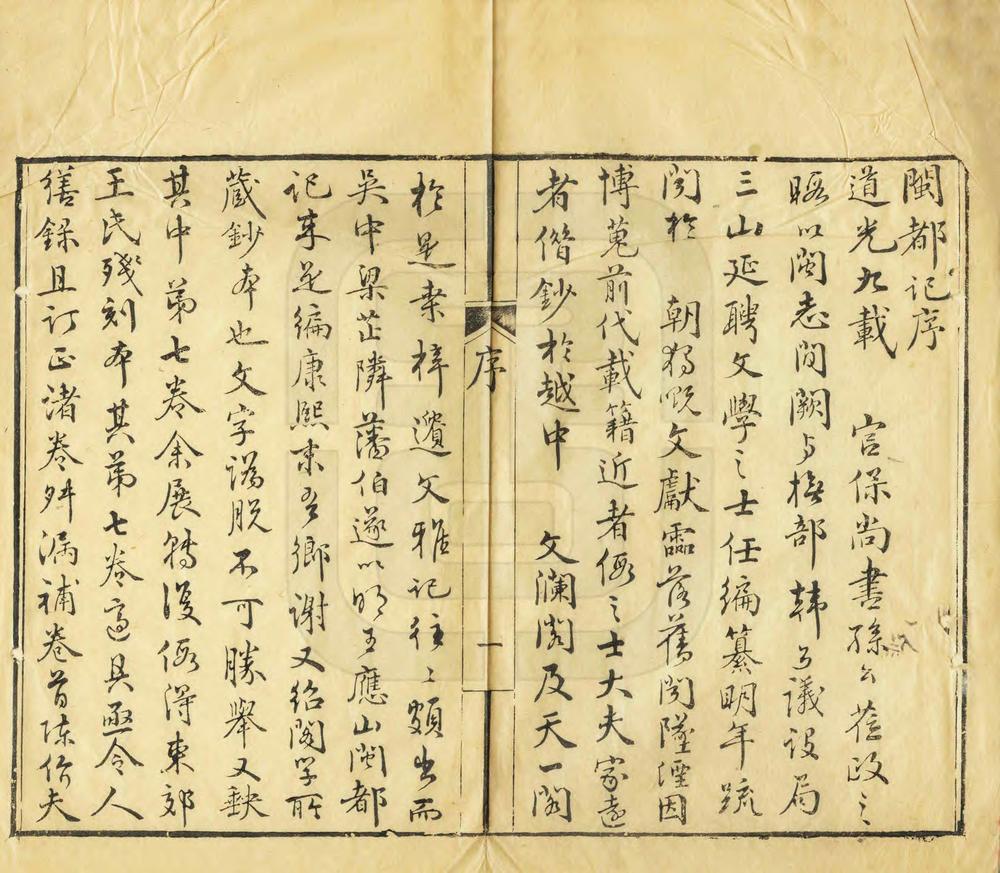 閩都記序
道光九載 宮保尚書孫公蒞政之
暇以閩志閒闕与撫部韓公議設局
三山延聘文學之士任編纂明年疏
聞於 朝猶以文獻霝落舊聞墜湮因
博蒐前代載籍近者假之士大夫家遠
者借鈔於越中 文瀾閣及天一閣
於是桒梓遺文雅記往〻頗出而
吳中梁芷隣藩伯遂以明王應山閩都
記來是編康熙末吾鄉謝又紹閣學所
藏鈔本也文字譌脫不可勝舉又缺
其中第七卷余展轉復假得東郊
王氏殘刻本其第七卷適具亟令人
繕錄且訂正諸卷舛漏補卷首陳价夫
序
一